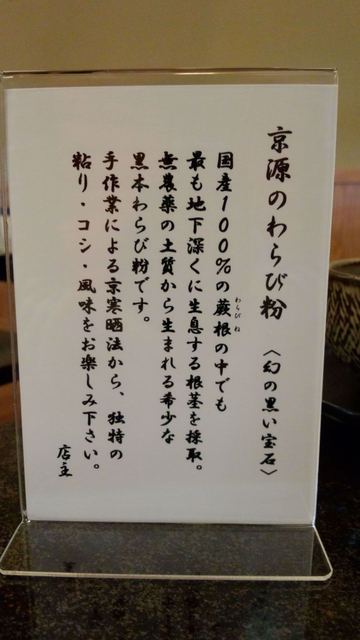 京源のわらび粉 〈幻の黒い宝石〉
国産100%の蕨根の中でも
わらびね
最も地下深くに生息する根茎を採取。
無農薬の土質から生まれる希少な
黒本わらび粉です。
手作業による京寒晒法から、独特の
粘り・コシ・風味をお楽しみ下さい。
店主